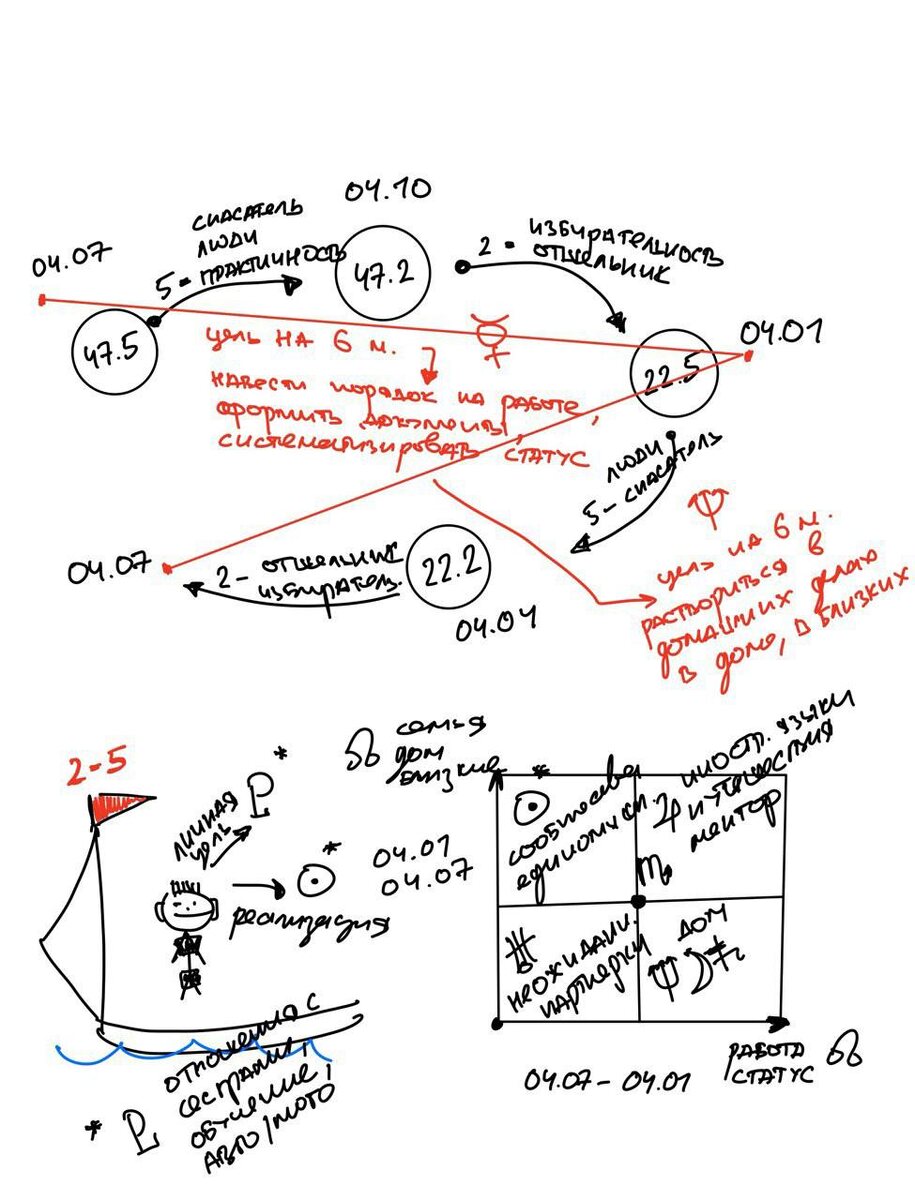 04.10
СПАСАТЕЛЬ
ЛЮДИ
5 - ПРАКТИЧНОСТЬ
04.07
47.5
47.2
2 - ИЗБИРАТЕЛЬНОСТЬ
ОТШЕЛЬНИК
22.5
04.01
ЦЕЛЬ НА 6 М.
НАВЕСТИ ПОРЯДОК НА РАБОТЕ,
ОФОРМИТЬ ДОКУМЕНТЫ,
СИСТЕМАТИЗИРОВАТЬ, СТАТУС
ЛЮДИ
5 - СПАСАТЕЛЬ
04.07
2 - ОТШЕЛЬНИК
ИЗБИРАТЕЛЬ.
22.2
04.04
ЦЕЛЬ НА 6 М.
РАСТВОРИТЬСЯ В
ДОМАШНИХ ДЕЛАХ
В ДОМЕ, В БЛИЗКИХ
2-5
ЛИЧНАЯ
ЦЕЛЬ
*
☊ СЕМЬЯ
ДОМ
БЛИЗКИЕ
РЕАЛИЗАЦИЯ
☉*
04.01
04.07
* ОТНОШЕНИЯ С
СЕСТРАМИ,
ОБУЧЕНИЕ,
АВТО/МОТО
☉ *
СООБЩЕСТВА
ЕДИНОМЫШЛ.
♃ ИНОСТР. ЯЗЫКИ
ПУТЕШЕСТВИЯ
МЕНТОР
♏
НЕОЖИДАНН.
ПАРТНЕРКИ
ДОМ
04.07 - 04.01
РАБОТА
СТАТУС ☊